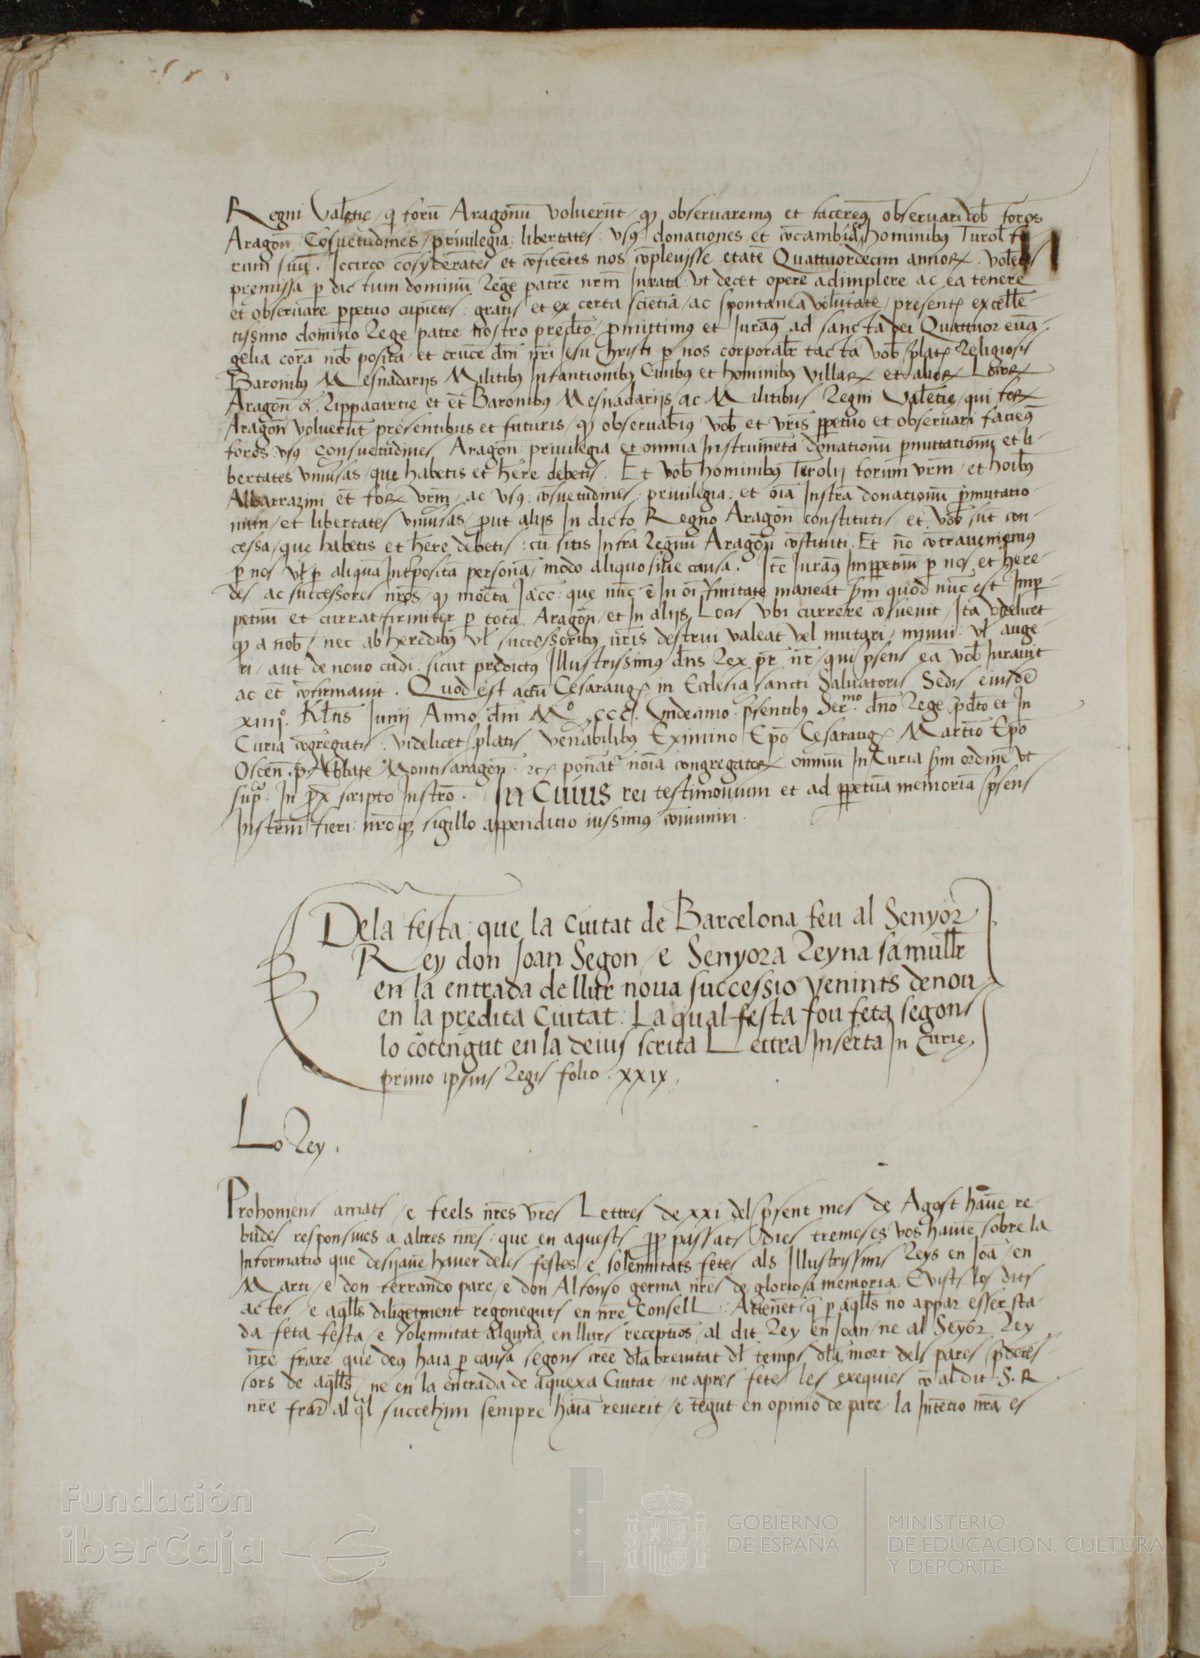 Regni Valētie / q̄ forū Aragonū voluerūt / q̄ observaremus et facereꝫ observari vob̄ foros
Aragon̄ Cōsuetudines / privilegia : libertates : usꝫ donationes et cōcambia hominibus Turol̄ fo
rum suū . Iccirco cōsyderātes et cōfitētes nos cōplevisse etatē Quattuordecim annoꝝ . Volētes
premissa p̄ dictum dominū Regē patrē nr̄m Iurata : ut decet opere adimplere ac ea tenere
et observare p̄petuo cupiētes : gratis et ex certa sciētia / ac spontanea volūtate / presenti excellē
tissimo domino Rege patre nostro predc̄to / p̄mittimus et Iuramꝰ ad sancta dei Quattuor evā
gelia corā nob̄ posita / et crucē dn̄i nr̄i Iesu Christi p̄ nos corporalr̄ tacta vob̄ p̄latis Religiosis
Baronibus Mesnadarijs Militibus Infantionibus Civibus et hominibus villaꝝ et alioꝝ Locoꝝ
Aragon̄ & Rippacurtie et ēt Baronibus Mesnadarijs ac Militibus Regni Valētie / qui foꝝ
Aragon̄ voluerūt presentibus et futuris / q̄ observabimꝰ vob̄ et vr̄is p̄petuo et observari faciemꝰ
foros usꝫ Consuetudines Aragon̄ privilegia et omnia Instrumēta donationū p̄mutationū et li-
bertates universas / que habetis et hēre debetis . Et vob̄ hominibus Turolij forum vr̄m / et hoībꝰ
Albarrazini ēt foꝝ vr̄m / ac usꝫ cōsuetudines privilegia : et oīa Instr̄a donationū p̄mutatio-
num / et libertates universas / p̄ut alijs In dicto Regno Aragon̄ constitutis et vob̄ sūt con-
cessa / que habetis et hēre debetis : cū sitis Infra Regnū Aragon̄ cōstituti . Et nō cōtraveniemus
p̄ nos vl̄ p̄ aliquā Intēpositā personā / modo aliquo sive causa . Itē Iuramꝰ Imp̄petuū p̄ nos et here
des ac successores nr̄os / q̄ monēta Iacc̄ : que nūc ē In oī firmitate maneat sm̄ quod nūc est Imp̄
petuū et currat firmiter p̄ totā Aragon̄ / et In alijs Locis ubi currere cōsuevit / Ita videlicet
q̄ a nob̄ / nec ab heredibus vl̄ successoribus nr̄is destrui valeat vel mutari / minui : vl̄ auge
ri / aut de novo cudi : sicut predictus Illustrissimus dn̄s Rex pr̄ nr̄ / qui p̄sens ea vob̄ Iuravit
ac ēt cōfirmavit . Quod est actū Cesaraugᷓ in Ecclesia sancti Salvatoris Sedis eiusdē
xiiij̊. Kl̄as Iunij Anno dn̄i M̊ . ccc̊ . Undecimo p̄sentibus Sermo . dn̄o Rege p̄dc̄to et In
Curia cōgregatis . videlicet p̄latis venābilibus Eximino Epō Cesaraugᷓ Martīo Epō
Oscen̄ . p̄ Abbate Montisaragon̄ : rc̄ꝫ ponāt noīa congregatoꝝ omniū In Curia sm̄ ordinē ut
sup̄ . In p̄x̄ scripto Instr̄o . In Cuius rei testimonium et ad p̄petuā memoriā p̄sens
Instrm̄ fieri : nr̄oq̄ sigillo appenditio iussimus cōmuniri .
Dela festa : que la Ciutat de Barcelona feu al Senyor
Rey don Joan Segon / e Senyora Reyna sa mullr̄
en la entrada de llur nova successio venints de nou
en la predita Ciutat : La qual festa fou feta segons
lo cōtengut en la deius scrita Lettra Inserta In Curie
primo ipsius Regis folio . xxix .
Lo Rey .
Prohomens amats / e feels nr̄es vr̄es Lettres de xxi del p̄sent mes de Agost hāve re-
budes responsives a altres nr̄es : que en aquests p̄p̄ passats dies tremeses vos hāvē sobre la
Informatio que desijavē haver deles festes e solemnitats fetes als Illustrissims Reys en Joā / en
Marti / e don ferrando pare / e don Alfonso germa nr̄es de gloriosa memoria E vists los dits
actes / e aq̄lls diligētment regoneguts en nr̄e Consell : Attenēt q̄ p̄ aq̄lls no appar esser sta-
da feta festa / e solemnitat alguna en llurs receptiōs / al dit Rey en Joan / ne al Seyōr Rey
nr̄e frare que deus haia p̄ causa segons cree dl̄a brevitat dl̄ temps dl̄a mort dels pares / p̄deces-
sors de aq̄lls / ne en la entrada de aquexa Ciutat / ne apres fetes les exequies cō al dit S. R
nr̄e frare al q̄l succehim sempre haiā reverit / e tēgut en opinio de pare / la Intētio nr̄a es
Fundación
iberCaja
GOBIERNO
DE ESPAÑA
MINISTERIO
DE EDUCACIÓN, CULTURA
Y DEPORTE